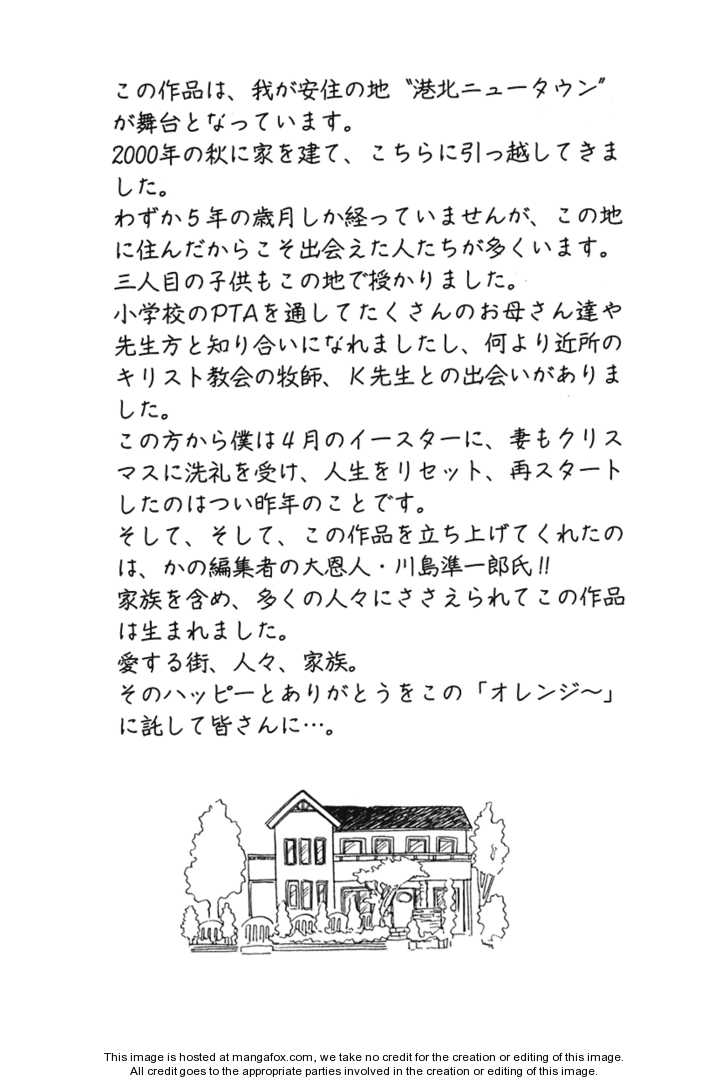 この作品は、我が安住の地〝港北ニュータウン〞
が舞台となっています。
2000年の秋に家を建て、こちらに引っ越してきま
した。
わずか5年の歳月しか経っていませんが、この地
に住んだからこそ出会えた人たちが多くいます。
三人目の子供もこの地で授かりました。
小学校のPTAを通してたくさんのお母さん達や
先生方と知り合いになれましたし、何より近所の
キリスト教会の牧師、K先生との出会いがありま
した。
この方から僕は4月のイースターに、妻もクリス
マスに洗礼を受け、人生をリセット、再スタート
したのはつい昨年のことです。
そして、そして、この作品を立ち上げてくれたの
は、かの編集者の大恩人・川島準一郎氏!!
家族を含め、多くの人々にささえられてこの作品
は生まれました。
愛する街、人々、家族。
そのハッピーとありがとうをこの「オレンジ〜」
に託して皆さんに…。
This image is hosted at mangafox.com, we take no credit for the creation or editing of this image.
All credit goes to the appropriate parties involved in the creation or editing of this image.